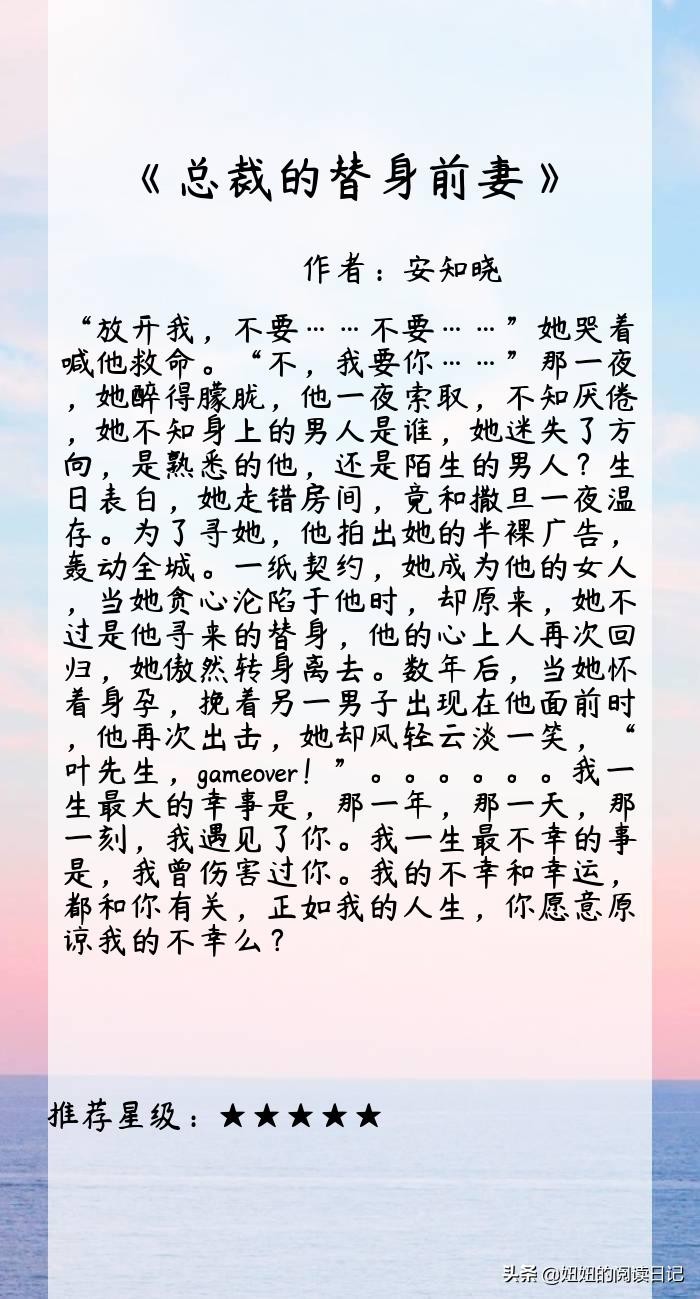 《总裁的替身前妻》
作者：安知晓
“放开我，不要……不要……”她哭着
喊他救命。“不，我要你……”那一夜
，她醉得朦胧，他一夜索取，不知厌倦
，她不知身上的男人是谁，她迷失了方
向，是熟悉的他，还是陌生的男人？生
日表白，她走错房间，竟和撒旦一夜温
存。为了寻她，他拍出她的半裸广告，
轰动全城。一纸契约，她成为他的女人
，当她贪心沦陷于他时，却原来，她不
过是他寻来的替身，他的心上人再次回
归，她傲然转身离去。数年后，当她怀
着身孕，挽着另一男子出现在他面前时
，他再次出击，她却风轻云淡一笑，“
叶先生，gameover！”。。。。。。我一
生最大的幸事是，那一年，那一天，那
一刻，我遇见了你。我一生最不幸的事
是，我曾伤害过你。我的不幸和幸运，
都和你有关，正如我的人生，你愿意原
谅我的不幸么？
推荐星级：★★★★★
头条 @妞妞的阅读日记